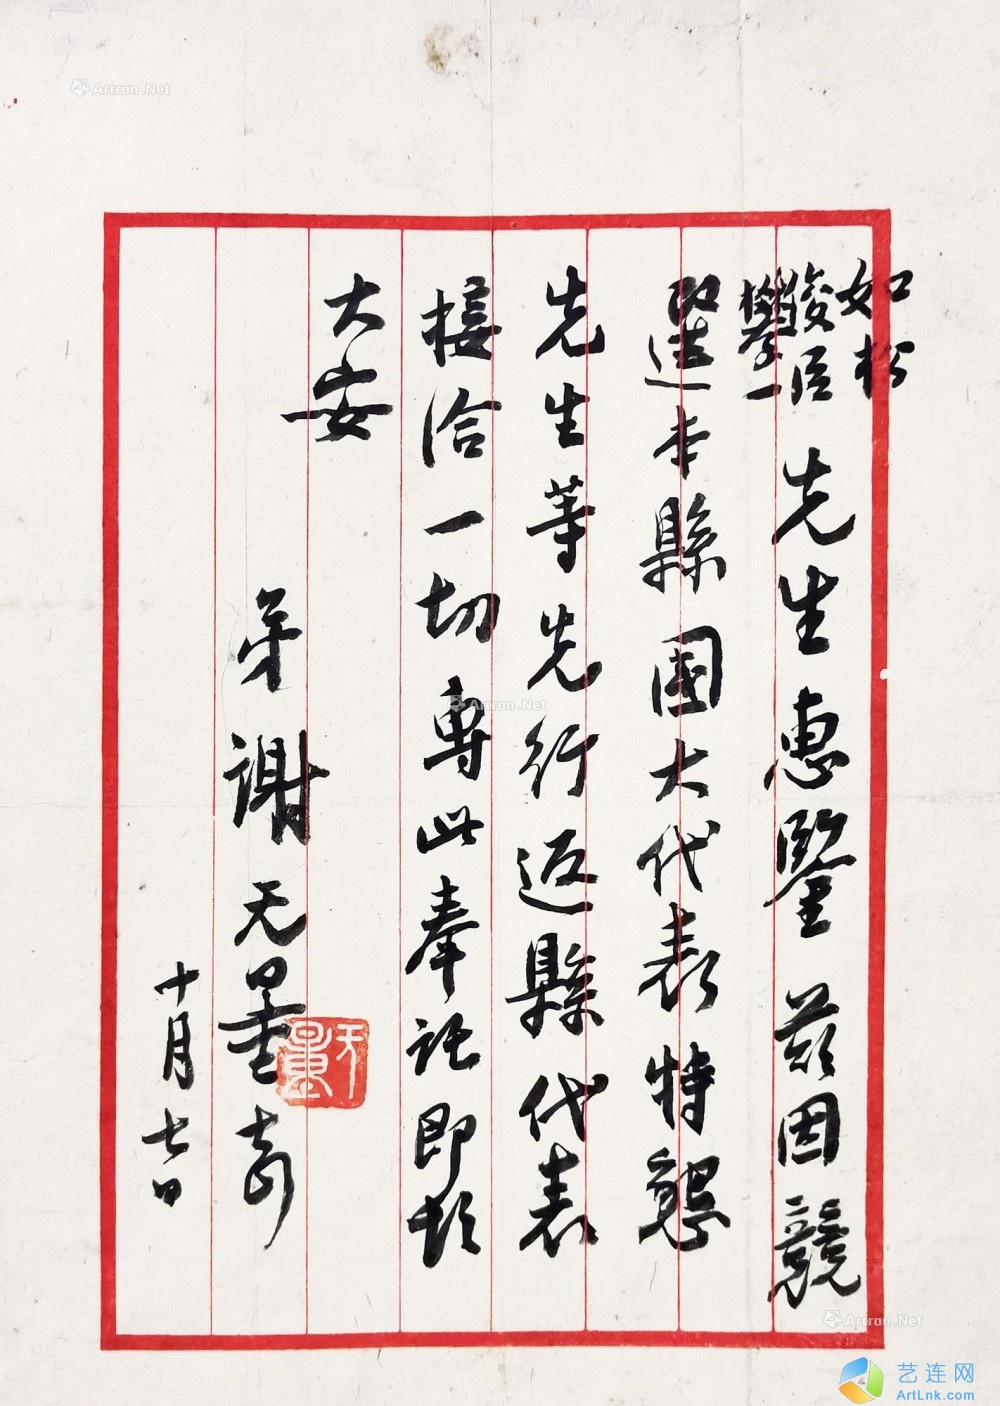 如松
俊臣
攀一
先生惠鑒茲因競
選本縣國大代表特懇
先生等先行返縣代表
接洽一切專此奉託即頌
大安
弟謝无量頓
十月七日
无量
Artron.Net
Artron.Net
Artron.Net
艺连网
ArtLnk.com